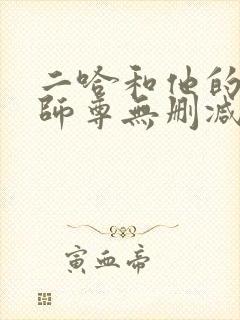 二哈和他的
師尊無刪减
寅血帝